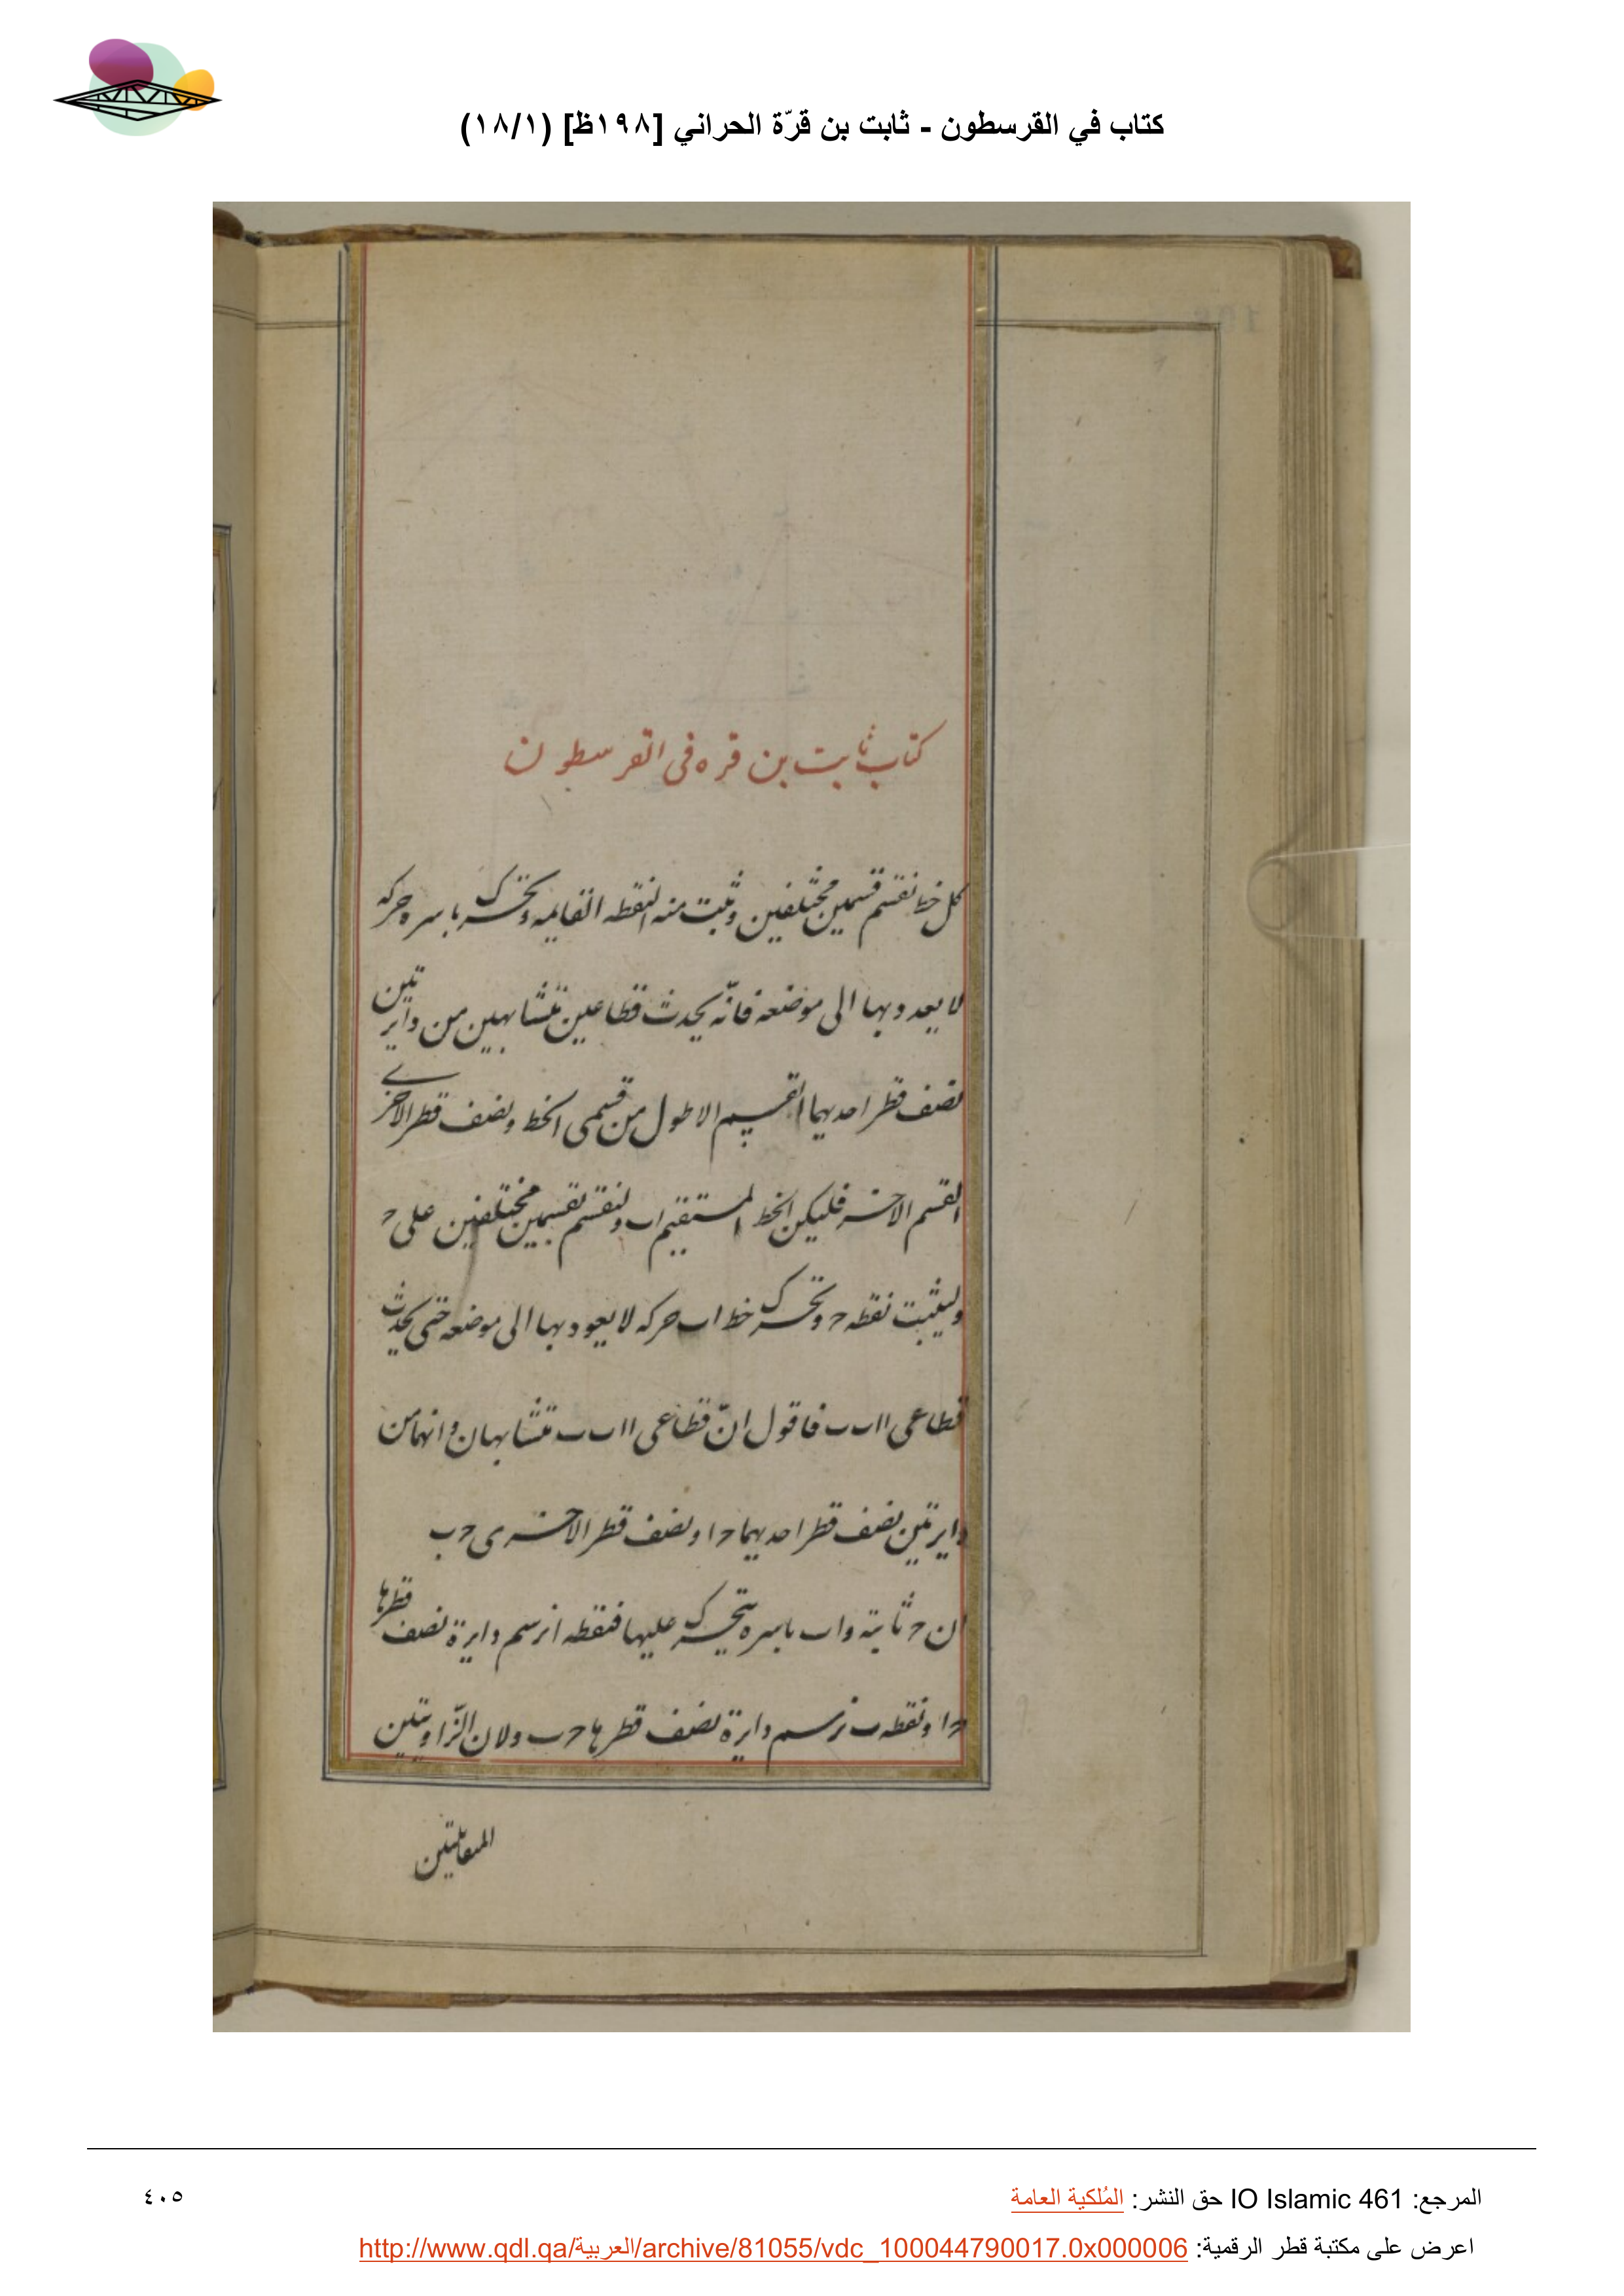 كتاب في القرسطون - ثابت بن قرّة الحراني [١٩٨ظ] (١٨/١)
كتاب ثابت بن قره فى القرسطون
كل خط نقسم قسمين مختلفين وثبت منه النقطه القايمه وتحرك باسره حركه
لا يعد وبها الى موضعه فانّه يحدث قطاعين متشابهين من دايرتين
نصف قطر احديهما القسم الاطول من قسمى الخط ونصف قطر الاخرى
القسم الاخر فليكن الخط المستقيم اب ولنقسم بقسمين مختلفين على ح
وليثبت نقطه ح وتحرك خط اب حركه لا يعود بها الى موضعه حتى يحدث
قطاعى ااب ب فاقول انّ قطاعى ااب ب متشابهان وانهما من
دايرتين نصف قطر احديهما حا ونصف قطر الاخرى حب
ان ح ثابتة واب باسره يتحرك عليها فنقطه ا ترسم دايرة نصف قطرها
حا ونقطه ب ترسم دايرة نصف قطرها حب ولان الزّاويتين
المتقابلتين
المرجع: IO Islamic 461 حق النشر: المُلكية العامة
٤٠٥
اعرض على مكتبة قطر الرقمية: http://www.qdl.qa/العربية/archive/81055/vdc_100044790017.0x000006